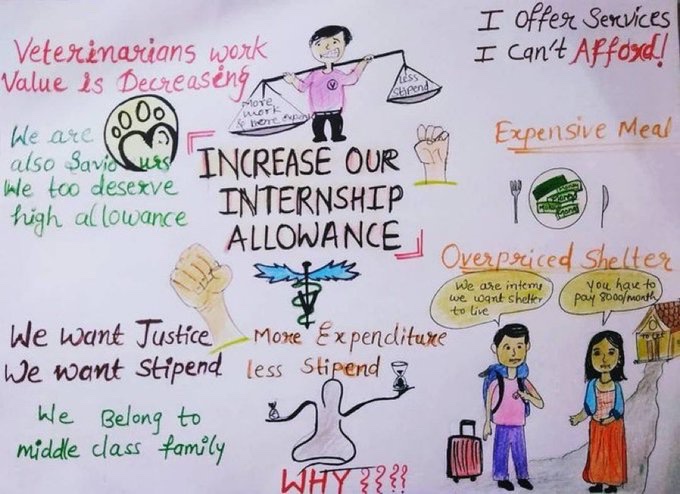 Veterinarians work
Value is Decreasing
More
work
& More
Less
Stipend
I Offer Services
I Can't Afford!
We are
also Saviours
We too deserve
high allowance
INCREASE OUR
INTERNSHIP
ALLOWANCE
Expensive Meal
Money
Money
Overpriced Shelter
We are interns
we want shelter
to live
You have to
pay 8000/month
We want Justice
We want Stipend
More Expenditure
less Stipend
We Belong to
middle class family
WHY ????